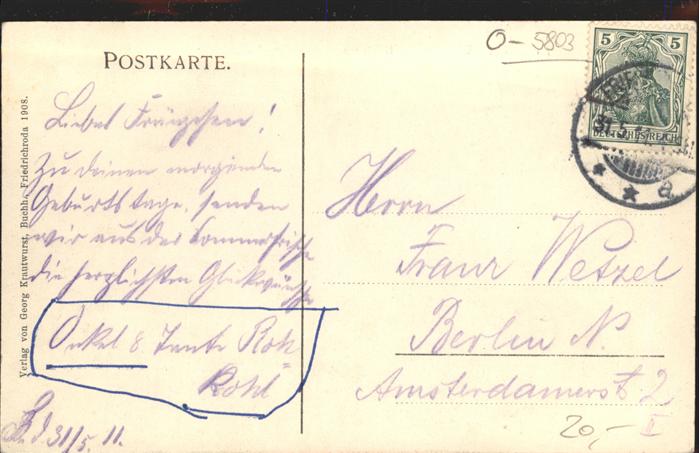 POSTKARTE.
O-5803
5 5
DEUTSCHES REICH
Verlag von Georg Krautwurst, Buchh., Friedrichroda 1908.
Liebes Fränzchen!
Zu deinem morgenden
Geburtstage, senden
wir aus der Sommerfrische
die herzlichsten Glückwünsche
Onkel & Tante
Kohl
31/5. 11.
Herrn
Franz Wetzel
Berlin N.
Amsterdamerst 2
20,- II